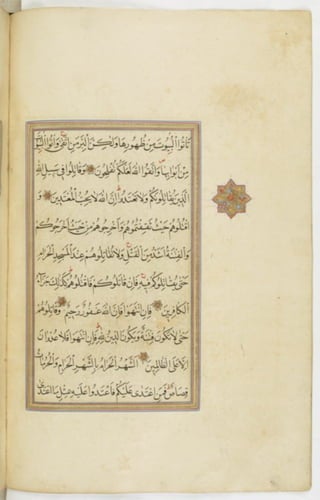 تأتوا البيوت من ظهورها ولكن البر من اتقى وأتوا البيوت
من أبوابها واتقوا الله لعلكم تفلحون وقاتلوا في سبيل الله
الذين يقاتلونكم ولا تعتدوا إن الله لا يحب المعتدين و
اقتلوهم حيث ثقفتموهم وأخرجوهم من حيث أخرجوكم
والفتنة أشد من القتل ولا تقاتلوهم عند المسجد الحرام
حتى يقاتلوكم فيه فإن قاتلوكم فاقتلوهم كذلك جزاء
الكافرين فإن انتهوا فإن الله غفور رحيم وقاتلوهم
حتى لا تكون فتنة ويكون الدين لله فإن انتهوا فلا عدوان
إلا على الظالمين الشهر الحرام بالشهر الحرام والحرمات
قصاص فمن اعتدى عليكم فاعتدوا عليه بمثل ما اعتدى